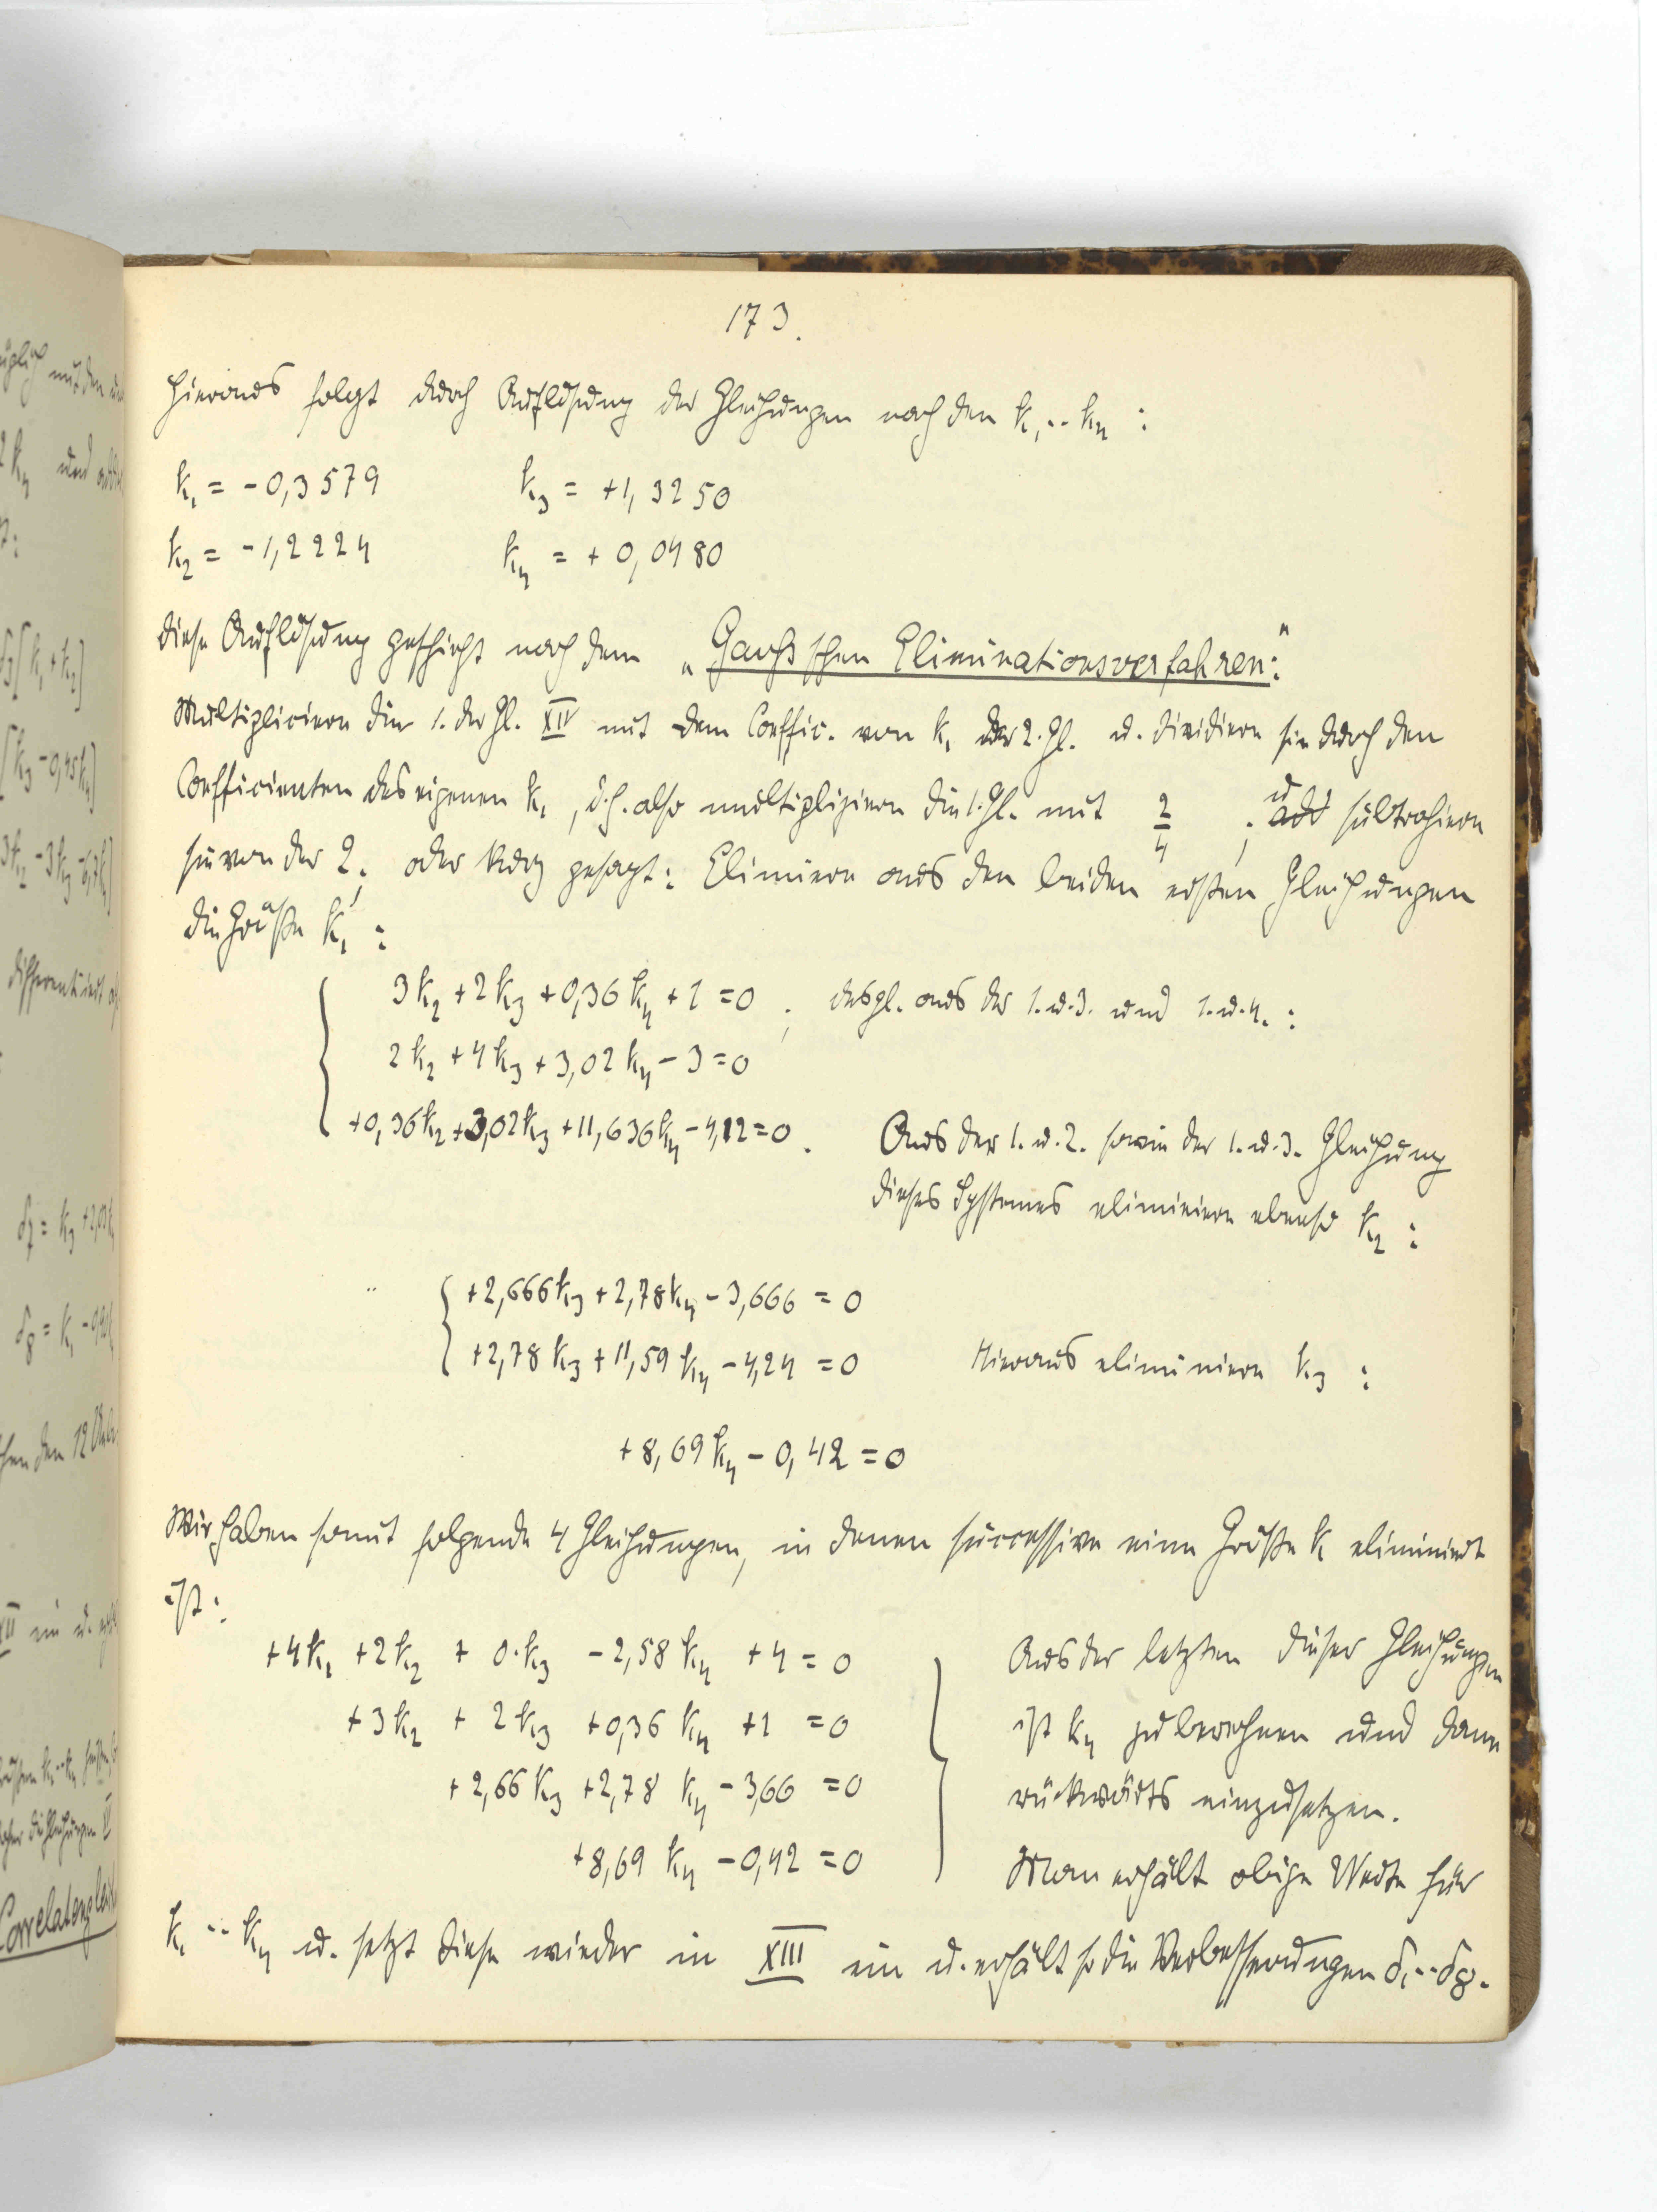 173.
Hieraus folgt durch Auflösung der Gleichungen nach den k₁..k₄ :
k₁ = -0,3579 k₃ = +1,3250
k₂ = -1,2224 k₄ = +0,0480
Diese Auflösung geschieht nach dem „Gauß'schen Eliminationsverfahren:"
Multipliciere die 1. der Gl. XIV mit dem Coeffic. von k₁ der 2. Gl. u. dividiere sie durch den
Coefficienten des eigenen k₁, d.h. also multipliziere die 1. Gl. mit 2/4 ; u. subtrahiere
sie von der 2.; oder kurz gesagt: Eliminiere aus den beiden ersten Gleichungen
die Größe k₁ :
3k₂ + 2k₃ + 0,36k₄ + 1 = 0 ; desgl. aus der 1. u. 3. und 1. u. 4. :
2k₂ + 4k₃ + 3,02k₄ - 3 = 0
+0,36k₂ + 3,02k₃ + 11,636k₄ - 4,12 = 0 . Aus der 1. u. 2. sowie der 1. u. 3. Gleichung
dieses Systemes eliminiere ebenso k₂ :
+2,666k₃ + 2,78k₄ - 3,666 = 0
+2,78k₃ + 11,59k₄ - 4,24 = 0 Hieraus eliminiere k₃ :
+8,69k₄ - 0,42 = 0
Wir haben somit folgende 4 Gleichungen, in denen successive eine Größe k eliminiert
ist:
+4k₁ + 2k₂ + 0·k₃ - 2,58k₄ + 4 = 0 Aus der letzten dieser Gleichungen
+3k₂ + 2k₃ + 0,36k₄ + 1 = 0 ist k₄ zu berechnen und dann
+2,66k₃ + 2,78k₄ - 3,66 = 0 rückwärts einzusetzen.
+8,69k₄ - 0,42 = 0 Man erhält obige Werte für
k₁..k₄ u. setzt diese wieder in XIII ein u. erhält so die Verbesserungen δ₁..δ₈.